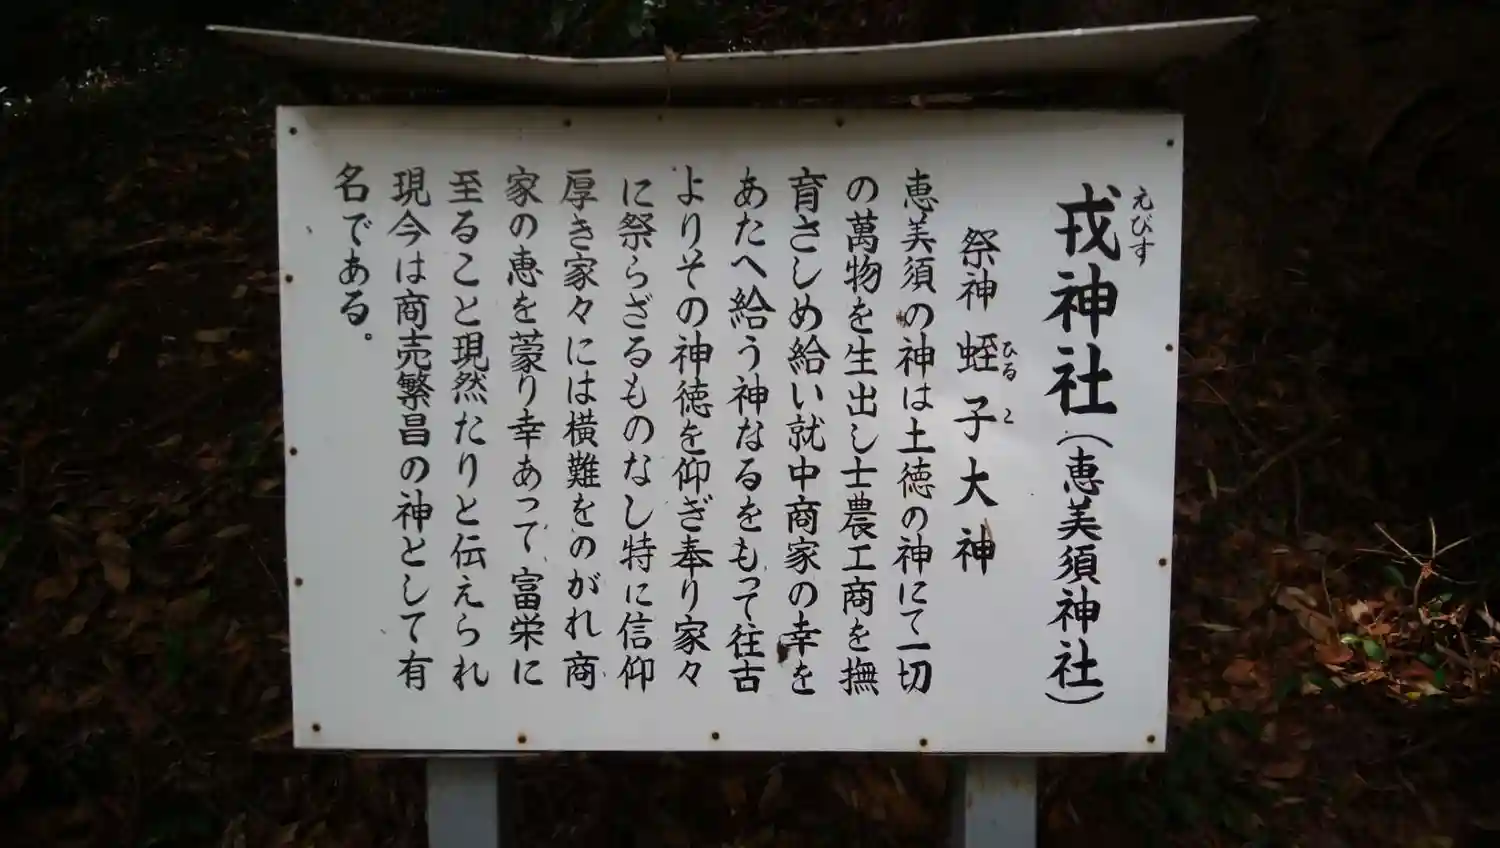 戎神社(恵美須神社)
えびす
祭神 蛭子大神
ひるこ
恵美須の神は土徳の神にて一切
の萬物を生出し士農工商を撫
育さしめ給い就中商家の幸を
あたへ給う神なるをもって往古
よりその神徳を仰ぎ奉り家々
に祭らざるものなし特に信仰
厚き家々には横難をのがれ商
家の恵を蒙り幸あって富栄に
至ること現然たりと伝えられ
現今は商売繁昌の神として有
名である。